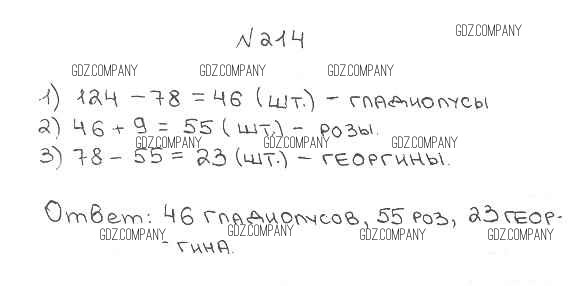 №214
GDZ.COMPANY
GDZ.COMPANY GDZ.COMPANY GDZ.COMPANY
1) 124 - 78 = 46 (шт.) - гладиолусы
2) 46 + 9 = 55 (шт.) - розы.
GDZ.COMPANY GDZ.COMPANY GDZ.COMPANY
3) 78 - 55 = 23 (шт.) - георгины.
Ответ: 46 гладиолусов, 55 роз, 23 геор-
GDZ.COMPANY GDZ.COMPANY GDZ.COMPANY GDZ.COMPANY
- гина.